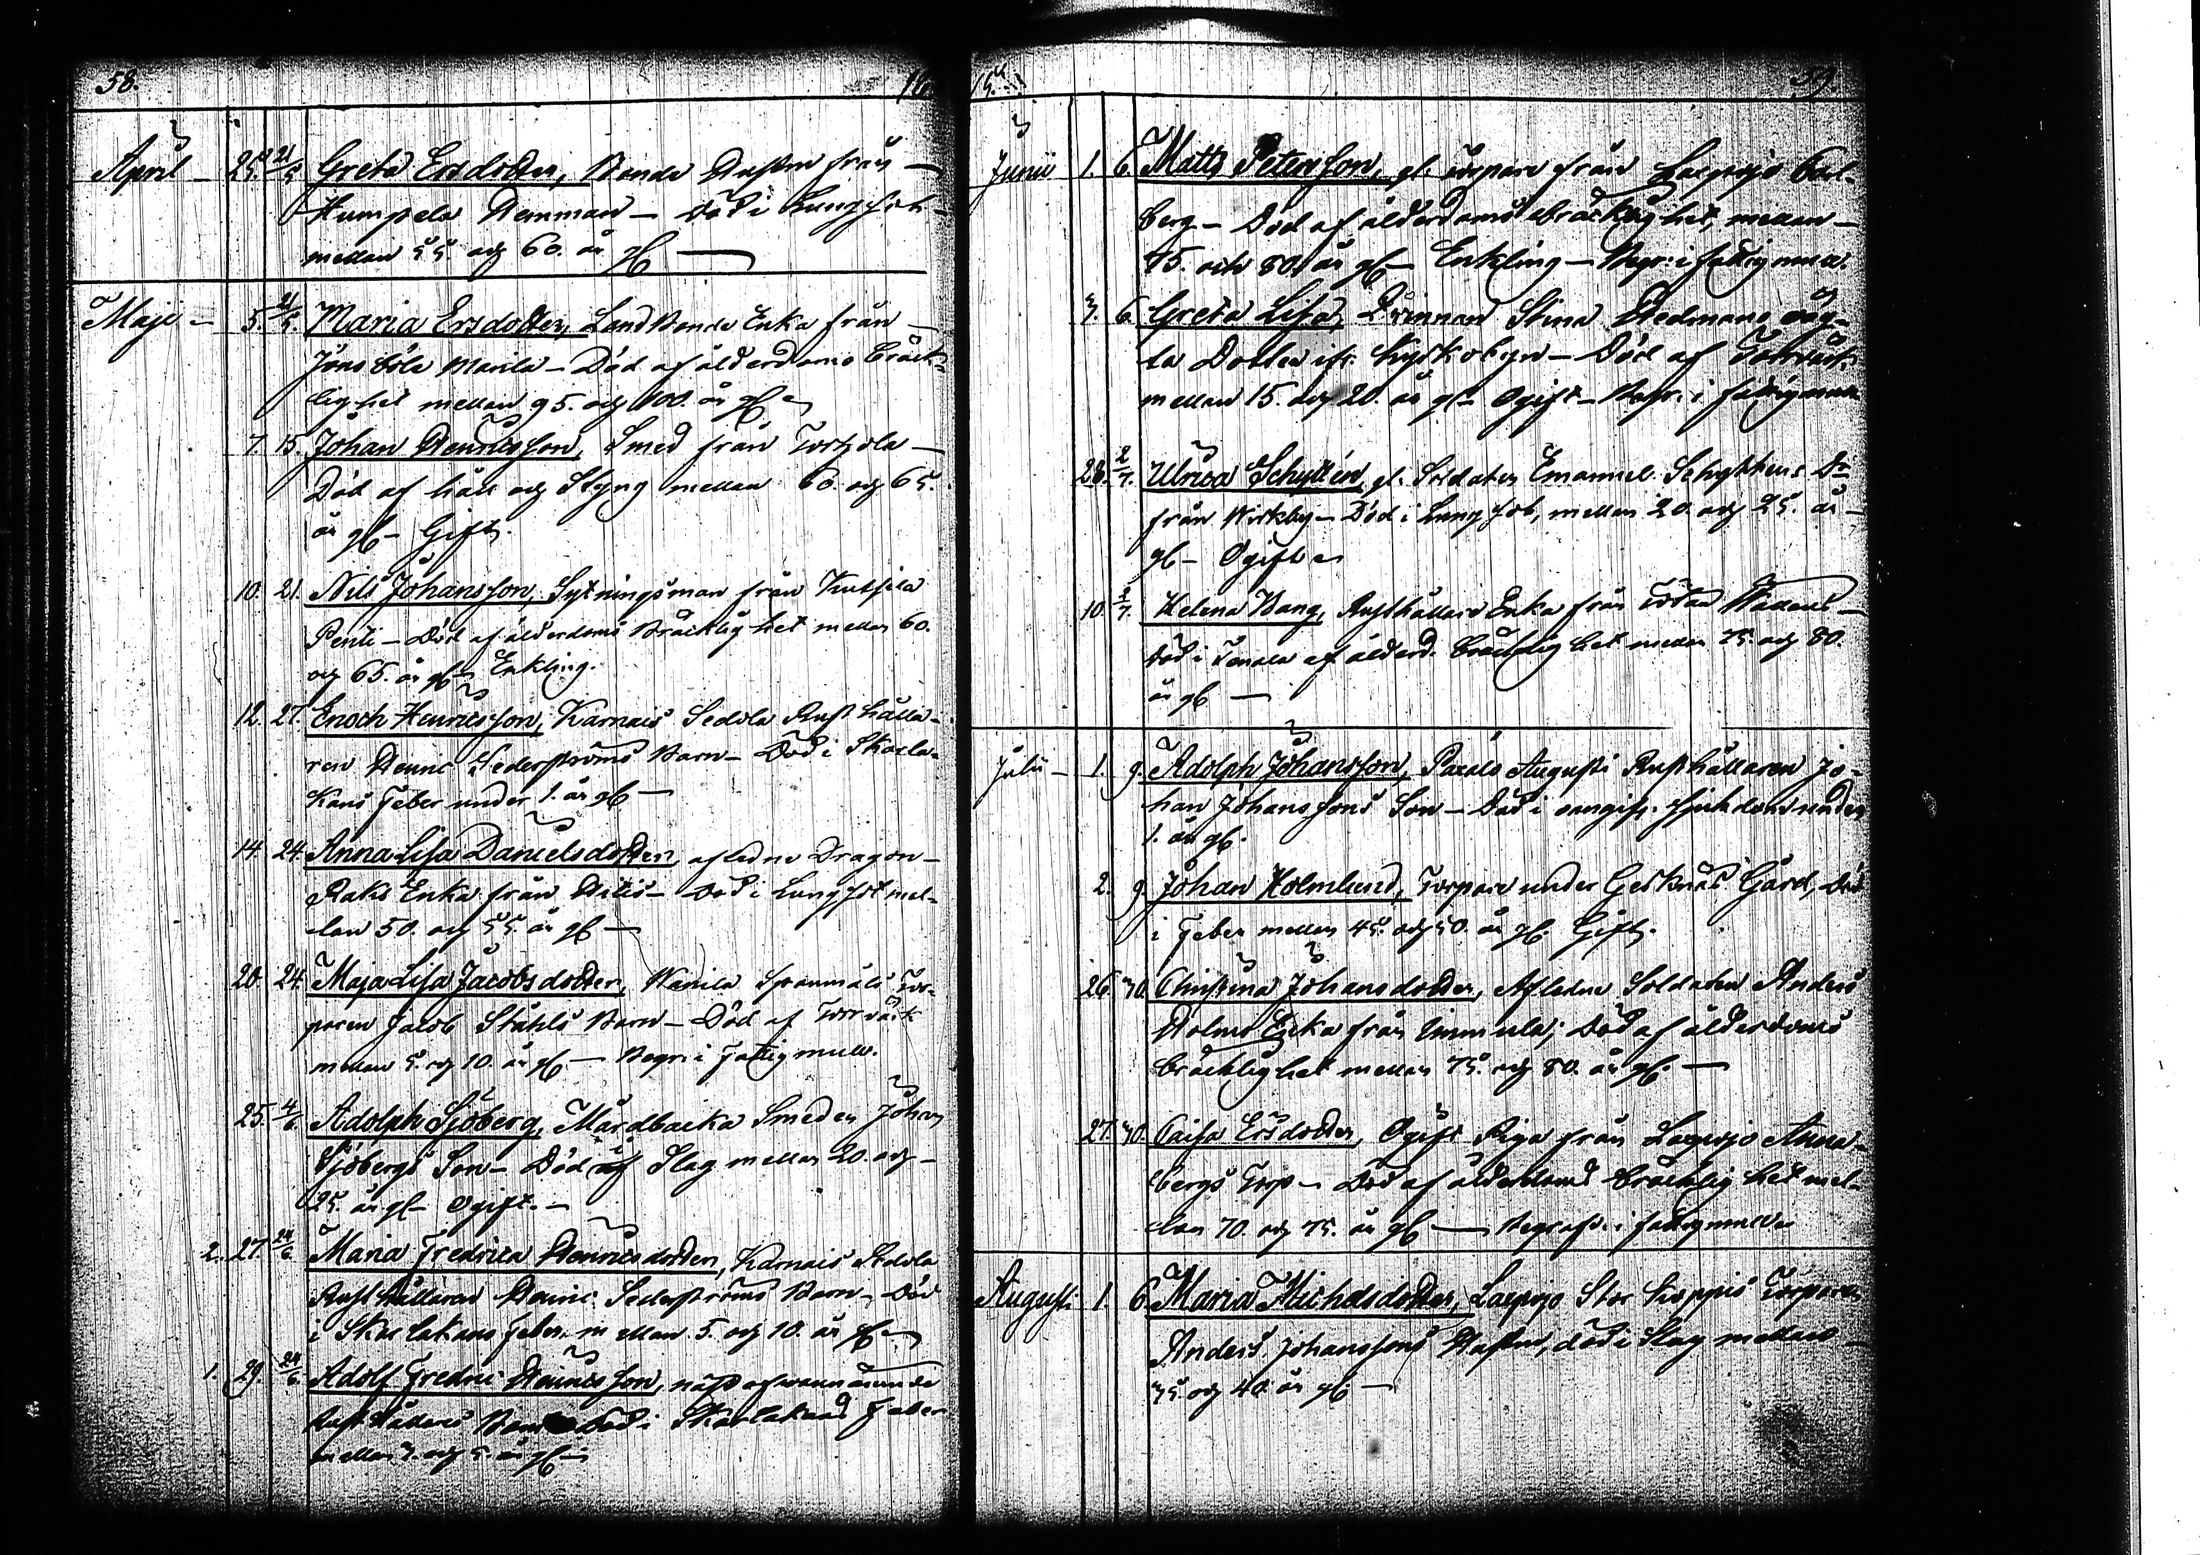 58.
April 25. 21/5 Greta Ersdotter, Bonde Hustru från
Humpela Hemman – död i Lungsot
mellan 55. och 60. år gl.
Maji 5. 21/5. Maria Ersdotter, Landbonde Enka från
Jönsböle Marila – Död af ålderdoms bräck-
lighet mellan 95. och 100. år gl.
7. 15. Johan Henricsson, Smed från
Död af håll och Styng mellan 60. och 65.
år gl – Gift.
10. 21. Nils Johansson, Sytningsman från
Pentti – Död af ålderdoms Bräcklighet mellan 60.
och 65. år gl – Enkling.
12. 27. Enoch Henricsson, Karnais Sedola Rusthålla-
ren Henric Sederströms Barn – Död i Skarla-
kans feber under 1. år gl –
14. 24. Anna Lisa Danielsdotter, afledne Dragon
Raks Enka från Hitis – död i Lungsot mel-
lan 50. och 55. år gl –
20. 24. Maja Lisa Jacobsdotter, Tor-
paren Jacob Ståhls Barn – Död af Torrvärk
mellan 5. och 10. år gl. – Begr. i Fattig mull.
25. 4/6. Adolph Sjöberg, Mårdbacka Smeden Johan
Sjöbergs Son – Död af Slag mellan 20. och
25. år gl – Ogift. –
2. 27. 24/6 Maria Fredrica Henricsdotter, Karnais Sedola
Rusthållaren Henric Sederströms Barn – Död
i Skarlakans feber mellan 5. och 10. år gl.
1. 29. 24/6 Adolf Fredric Henricsson, näst
Rusthållares Barn död i Skarlakans feber
mellan 3. och 5. år gl –
59.
Junii 1. 6. Matts Petersson, gl. torpare från Lappvjo Carl-
berg – Död af ålderdoms bräcklighet, mellan
75. och 80. år gl – Enkling – Begr. i fattig mull.
3. 6. Greta Lisa, Qvinnan Stina Hedmans oäg-
ta Dotter ifr. Kyrkobyn – Död af Torrvärk
mellan 15. och 20. år gl – Ogift – Begr. i fattig mull
28. 2/7. Ulrica Schyttén, gl. Soldaten Emanuel Schyttens Do
från Wirkby – Död i Lungsot, mellan 20. och 25. år
gl – Ogift
10. 2/7. Helena Bang, Rusthållare Enka från
död i Tenala af ålderd. bräcklighet mellan 75. och 80.
år gl –
Julii 1. 9. Adolph Johansson, Rusthållaren Jo-
han Johanssons Son – Död i oangif. sjukdom under
1. år gl.
2. 9. Johan Holmlund, Torpare under Gerknäs Gård, Död
i feber mellan 45. och 50. år gl. Gift.
26. 30. Christina Johansdotter, Afledne Soldaten Anders
Holms Enka från Immula; Död af ålderdoms
bräcklighet mellan 75. och 80. år gl. –
27. 30. Caisa Ersdotter, Ogift Piga från Lappvjo Anna-
bergs Torp – Död af ålderdoms bräcklighet mel-
lan 70. och 75. år gl – Begrafv. i fattigmull
Augusti 1. 6. Maria Michelsdotter, Lappvjo Stor Torparen
Anders Johanssons Hustru, död i Slag mellan
35. och 40. år gl. –